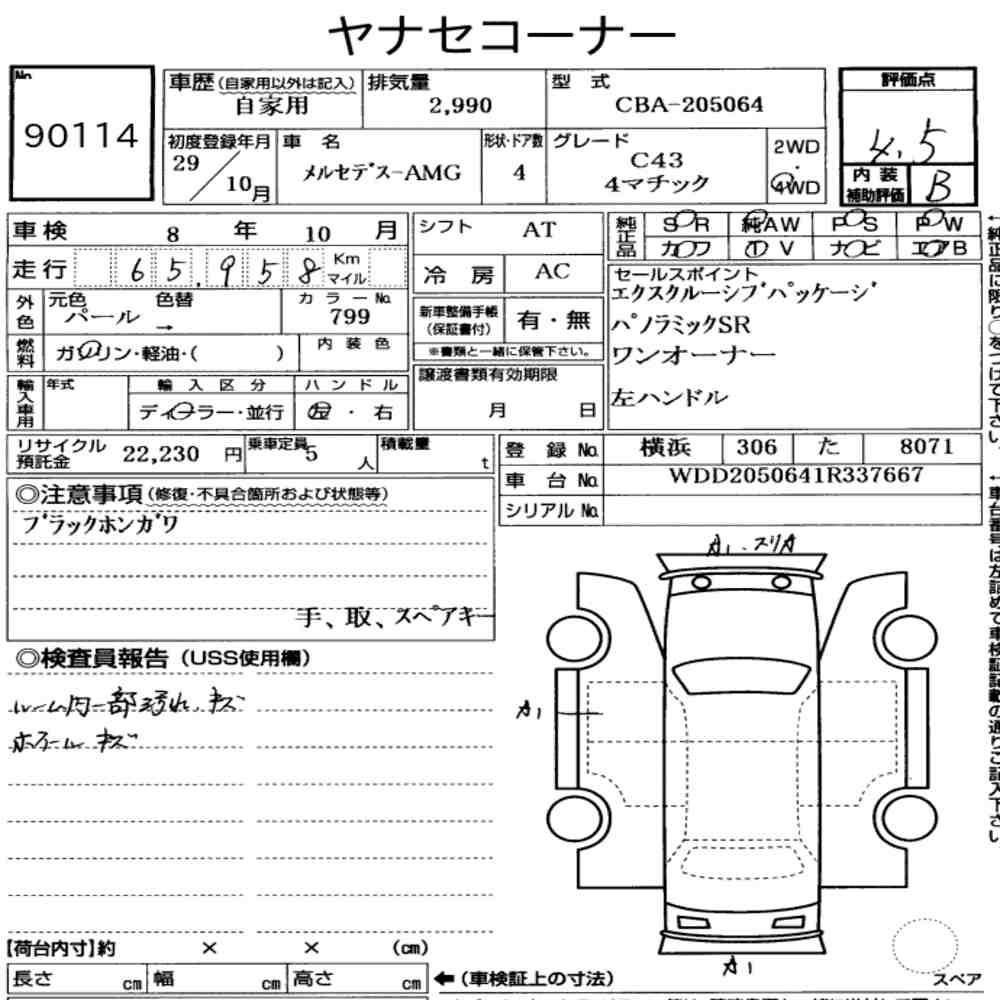 ヤナセコーナー
No.
90114
車歴(自家用以外は記入)
自家用
排気量
2,990
型 式
CBA-205064
評価点
4.5
初度登録年月
29/10月
車 名
メルセデス-AMG
形状・ドア数
4
グレード
C43
4マチック
2WD
・
4WD
内装補助評価
B
車検 8 年 10 月
走行 65,958 Km マイル
外色
元色 色替
パール →
カラーNo.
799
燃料
ガソリン・軽油・( )
内装色
輸入車用
年式
輸入区分
ディーラー・並行
ハンドル
左・右
シフト AT
冷房 AC
新車整備手帳(保証書付)
有・無
※書類と一緒に保管下さい。
譲渡書類有効期限
月 日
純正品
SR 純AW PS PW
カワ TV ナビ エアB
セールスポイント
エクスクルーシブパッケージ
パノラミックSR
ワンオーナー
左ハンドル
←純正品に限り○をつけて下さい。
リサイクル預託金 22,230 円
乗車定員 5 人
積載量 t
登録No. 横浜 306 た 8071
車台No. WDD2050641R337667
シリアルNo.
←車台番号は左詰めで車検証記載の通りご記入下さい。
◎注意事項(修復・不具合箇所および状態等)
ブラックホンガワ
手、取、スペアキー
◎検査員報告(USS使用欄)
ルーム内一部汚れ、キズ
ホイールキズ
A1・スリA
A1
A1
スペア
【荷台内寸】約 × × (cm)
長さ cm 幅 cm 高さ cm
←(車検証上の寸法)